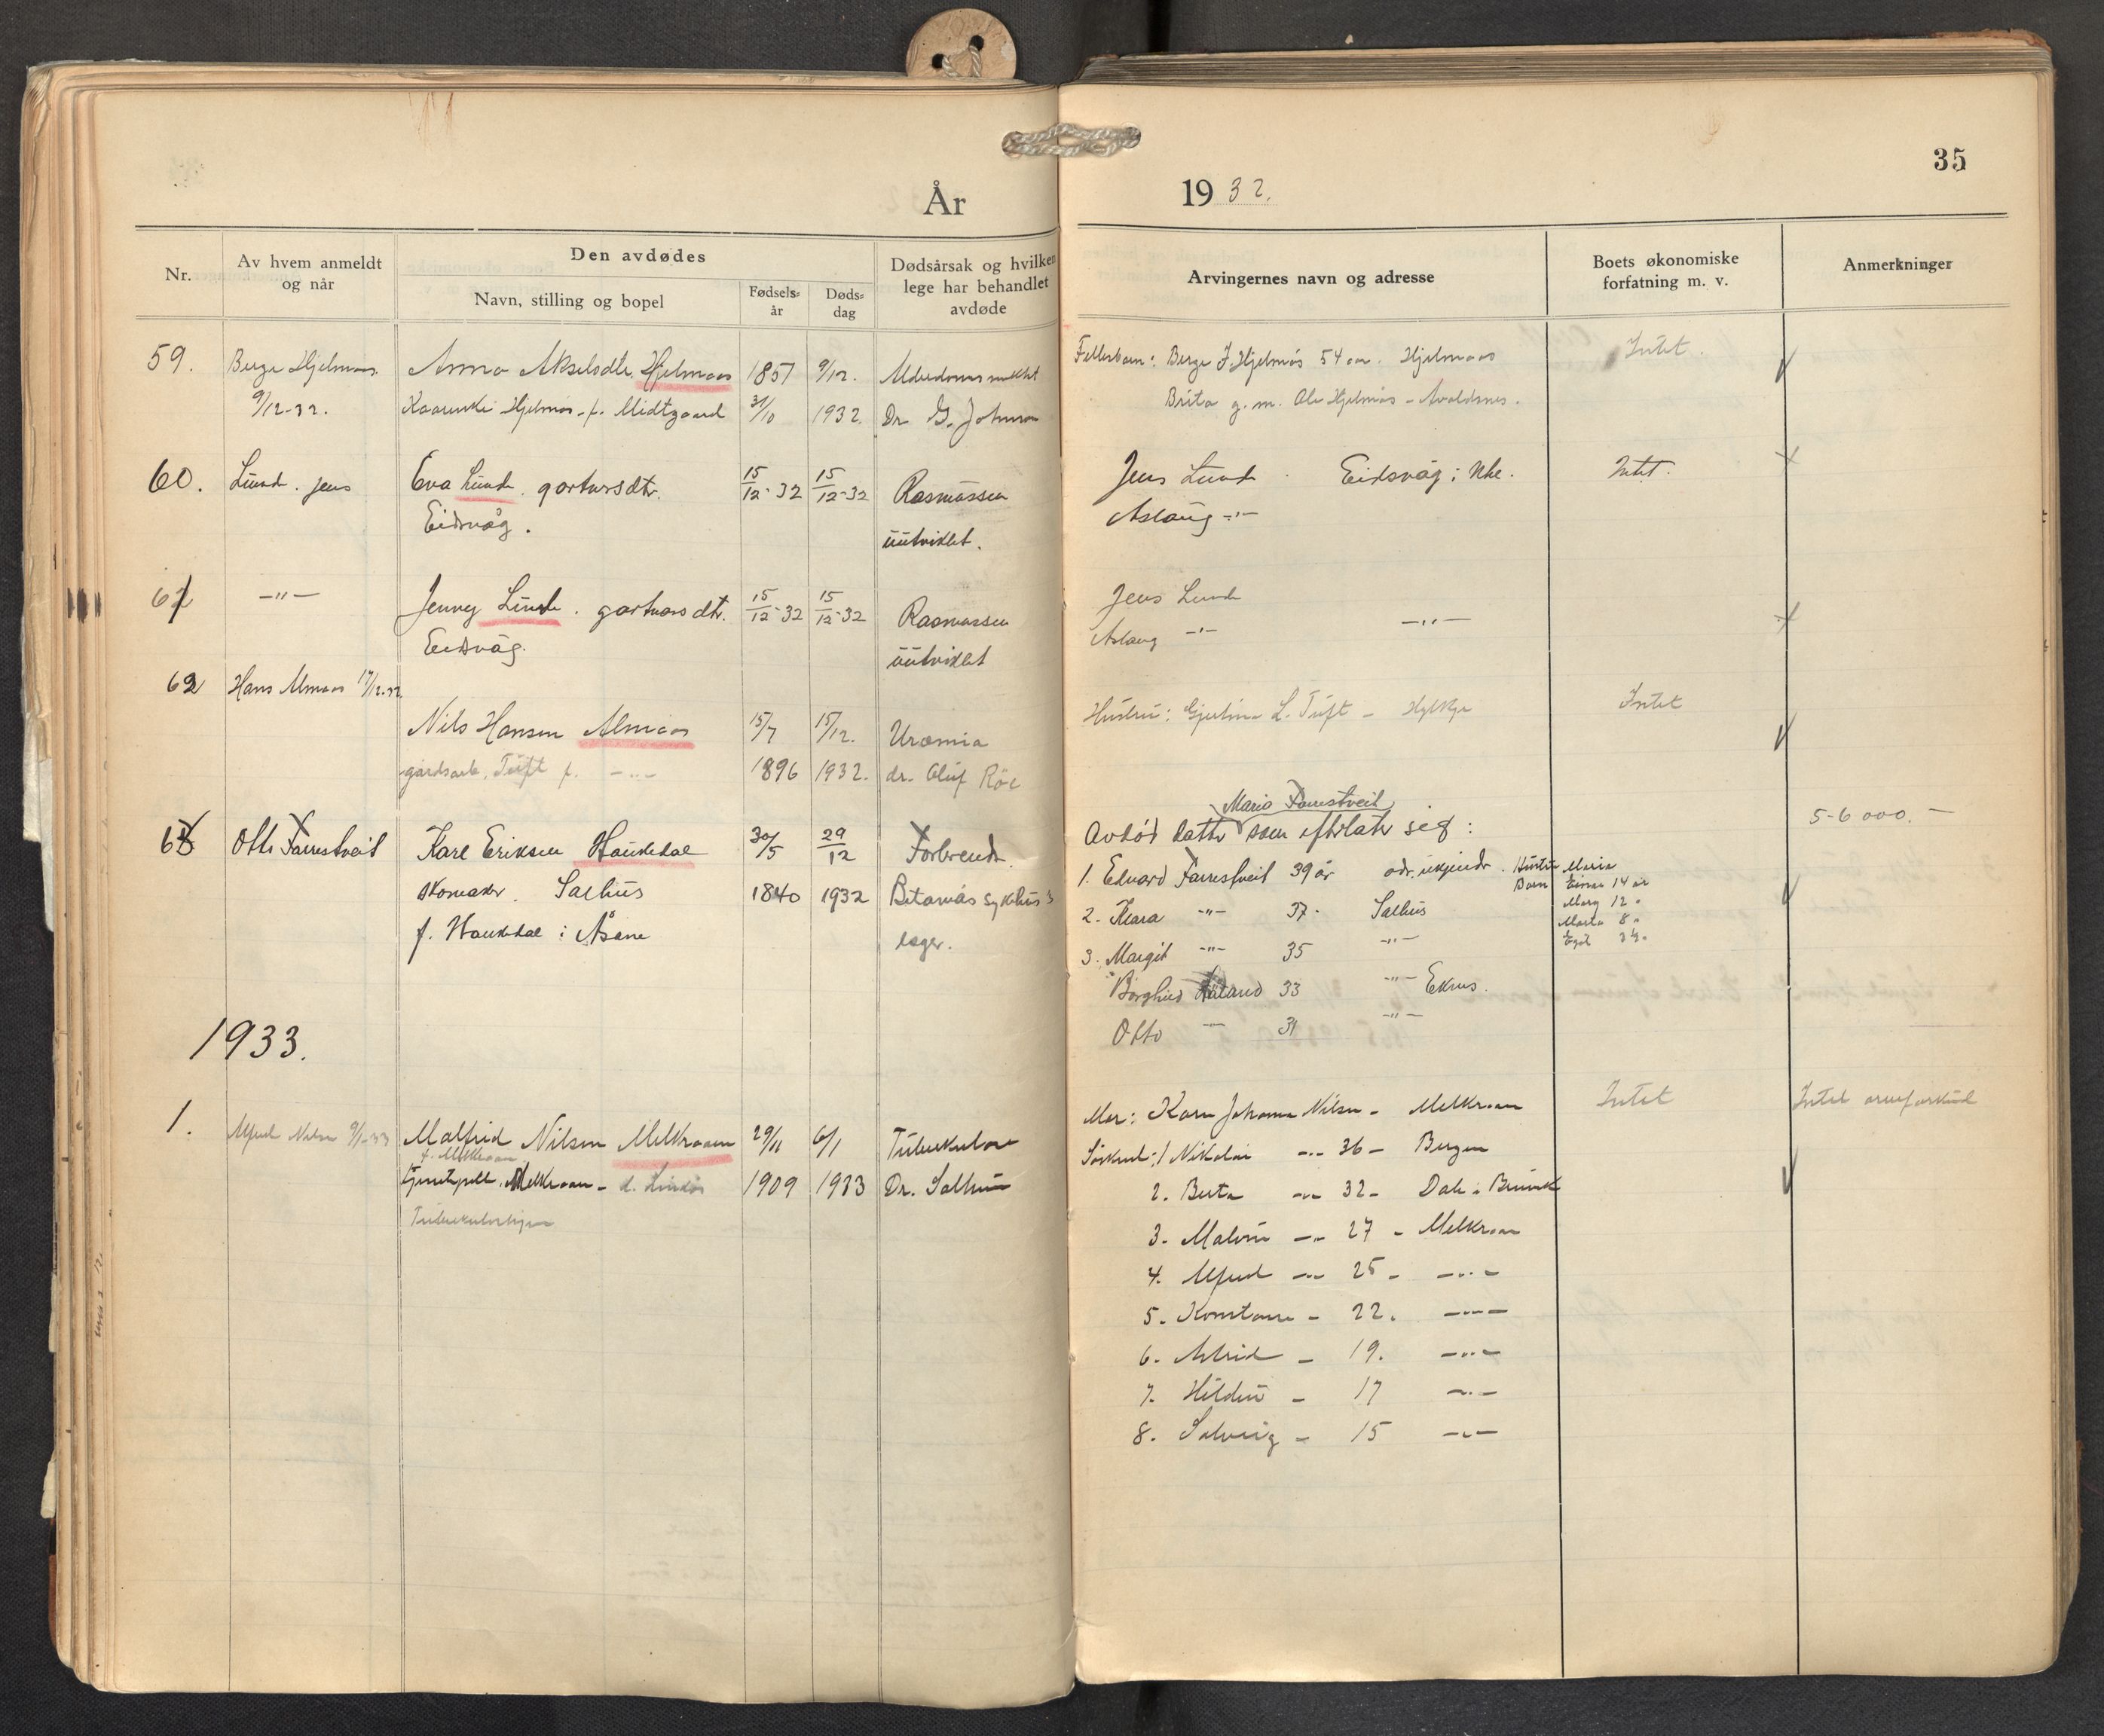 35
År 1932.
Nr.
Av hvem anmeldt og når
Den avdødes
Navn, stilling og bopel
Fødselsår
Dødsdag
Dødsårsak og hvilken lege har behandlet avdøde
Arvingernes navn og adresse
Boets økonomiske forfatning m. v.
Anmerkninger
59. Berge Hjelmaas Anna Akselsdtr. Hjelmaas 1857 9/12. Alderdomssvakhet Fellesbarn: Berge J. Hjelmås 54 aar. Hjelmaas Intet.
9/12-32. Hjelmås - f. Midtgaard 31/10 1932. Dr. G. Johnson Brita g. m. Ole Hjelmås - Avaldsnes.
60. Lund. Jens Eva Lunde. gartnersdtr. 15/12-32 15/12-32 Rasmussen Jens Lunde Eidsvåg i Hke. Intet.
Eidsvåg. uutviklet. Aslaug -"-
61 -"- Jenny Lunde. gartnersdtr. 15/12-32 15/12-32 Rasmussen Jens Lunde
Eidsvåg. uutviklet Aslaug -"- -"-
62 Hans Almaas 17/12-32
Nils Hansen Almaas 15/7 15/12. Uræmia Hustru: Gjertine L. Tuft - Hylkje Intet
gårdsarb. Tuft f. -"- 1896 1932. dr. Oluf Röe
Maria Farestveit
63 Otto Farestveit Karl Eriksen Haukedal 30/5 29/12 Forbrendt. Avdöd datter som efterlater seg: 5-6 000.-
skomaker. Salhus 1840 1932 Betanias sykehus's
f. Haukedal i Åsane læger.
1. Edvard Farestveit 39 år adr. ukjendt. Hustru Maria
Barn Einar 14 år
2. Klara -"- 37. Salhus Marg 12 "
Marta 8 "
3. Margit -"- 35 -"- Egil 3½ "
Borghild 33 -"- Eknes.
Otto - 31 -"-
1933.
1. Alfred Nilsen 9/1-33 Malfrid Nilsen Melkraaen 29/11 6/1 Tuberkulose Mor: Karen Johanna Nilsen - Melkraaen Intet Intet arveforskud
f. Melkraaen
Melkraaen - d. 1909 1933 Dr. Salhus Söskend: 1 Nikolai -"- 36 - Bergen
2. Berta -"- 32 - Dale i Bruvik
3. Malvin -"- 27 - Melkraaen
4. Alfred -"- 25 - -"-
5. Konstanse - 22. -"-
6. Astrid - 19. -"-
7. Hildur - 17 -"-
8. Solveig - 15 -"-